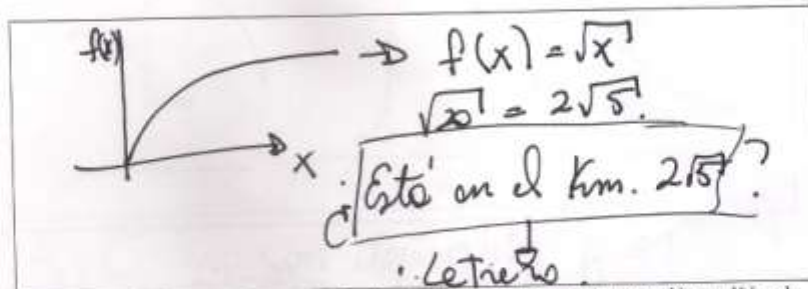 f(x)
x
→ f(x) = √x
√20 = 2√5.
¿Está en el Km. 2√5?
. Letrero.